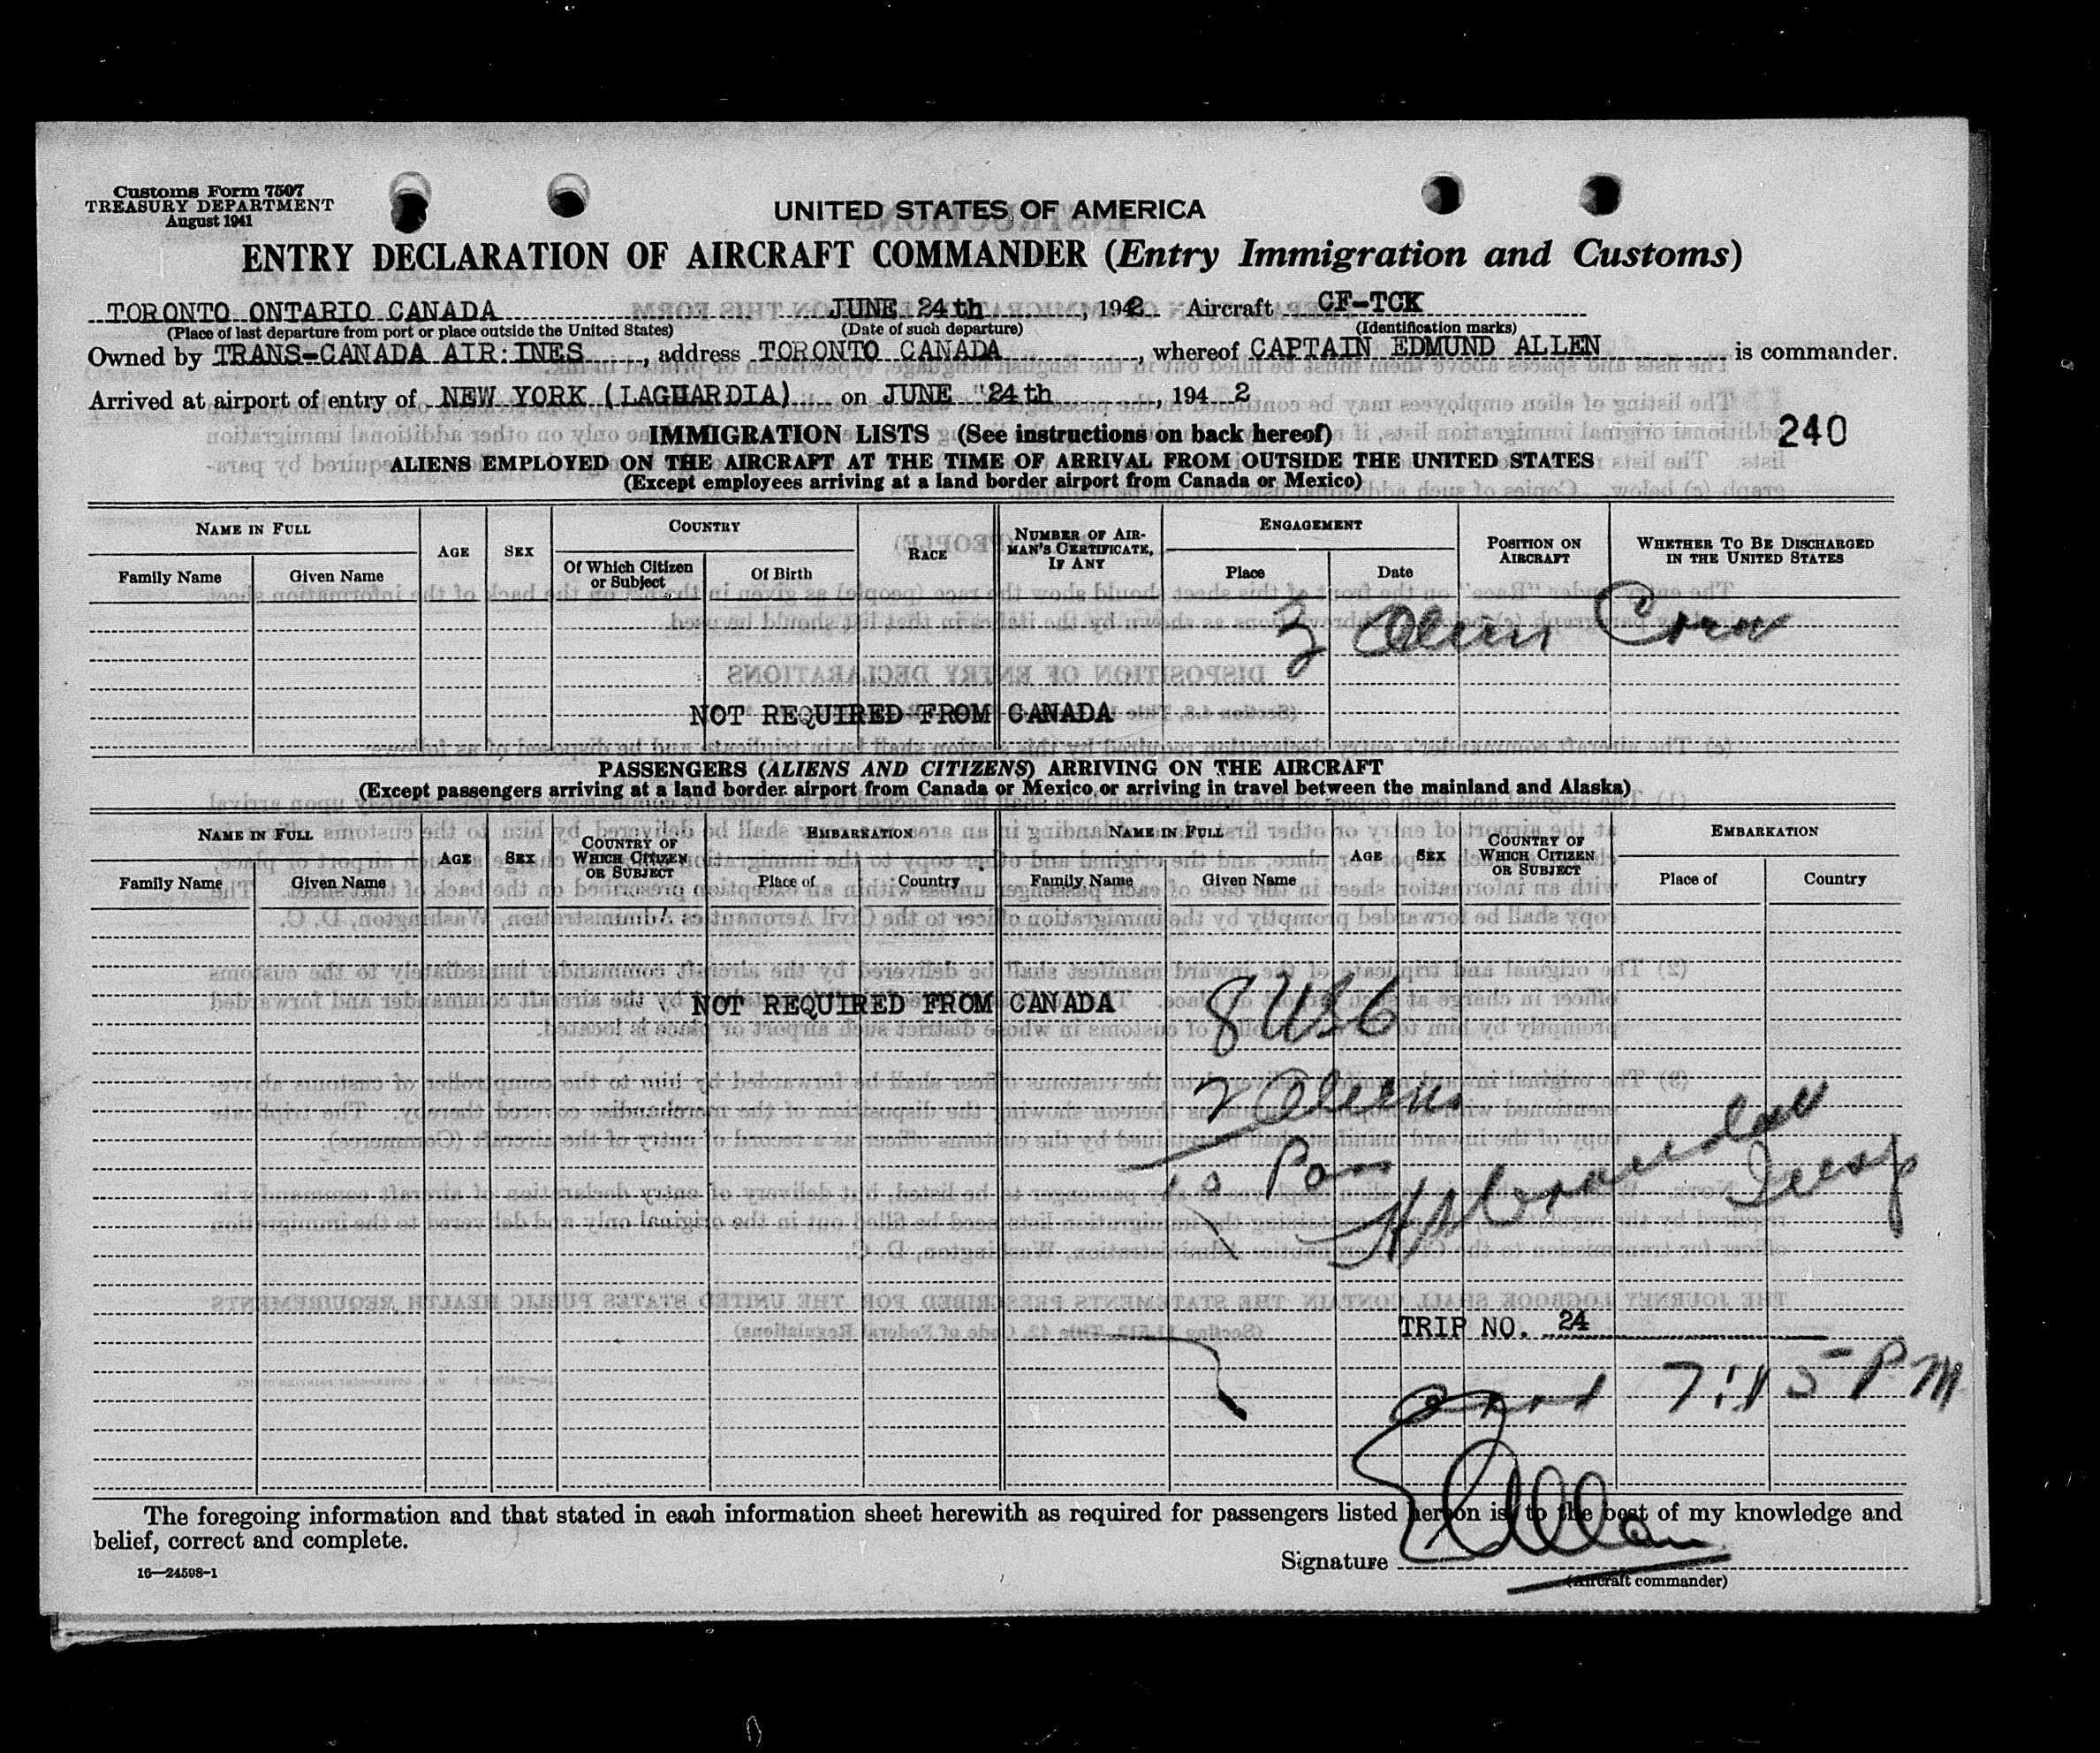 Customs Form 7507
TREASURY DEPARTMENT
August 1941
UNITED STATES OF AMERICA
ENTRY DECLARATION OF AIRCRAFT COMMANDER (Entry Immigration and Customs)
TORONTO ONTARIO CANADA JUNE 24th, 1942 Aircraft CF-TCK
(Place of last departure from port or place outside the United States) (Date of such departure) (Identification marks)
Owned by TRANS-CANADA AIR:INES, address TORONTO CANADA, whereof CAPTAIN EDMUND ALLEN is commander.
Arrived at airport of entry of NEW YORK (LAGUARDIA) on JUNE "24th, 194 2
IMMIGRATION LISTS (See instructions on back hereof) 240
ALIENS EMPLOYED ON THE AIRCRAFT AT THE TIME OF ARRIVAL FROM OUTSIDE THE UNITED STATES
(Except employees arriving at a land border airport from Canada or Mexico)
NAME IN FULL AGE SEX COUNTRY RACE NUMBER OF AIRMAN'S CERTIFICATE, IF ANY ENGAGEMENT POSITION ON AIRCRAFT WHETHER TO BE DISCHARGED IN THE UNITED STATES
Family Name Given Name Of Which Citizen or Subject Of Birth Place Date
3 Alien Crew
NOT REQUIRED FROM CANADA
PASSENGERS (ALIENS AND CITIZENS) ARRIVING ON THE AIRCRAFT
(Except passengers arriving at a land border airport from Canada or Mexico or arriving in travel between the mainland and Alaska)
NAME IN FULL AGE SEX COUNTRY OF WHICH CITIZEN OR SUBJECT EMBARKATION NAME IN FULL AGE SEX COUNTRY OF WHICH CITIZEN OR SUBJECT EMBARKATION
Family Name Given Name Place of Country Family Name Given Name Place of Country
NOT REQUIRED FROM CANADA 8 USC
2 Aliens
10 Pass
Insp
TRIP NO. 24
7:15 PM
The foregoing information and that stated in each information sheet herewith as required for passengers listed hereon is, to the best of my knowledge and
belief, correct and complete.
Signature E Allen
16—24598-1 (Aircraft commander)